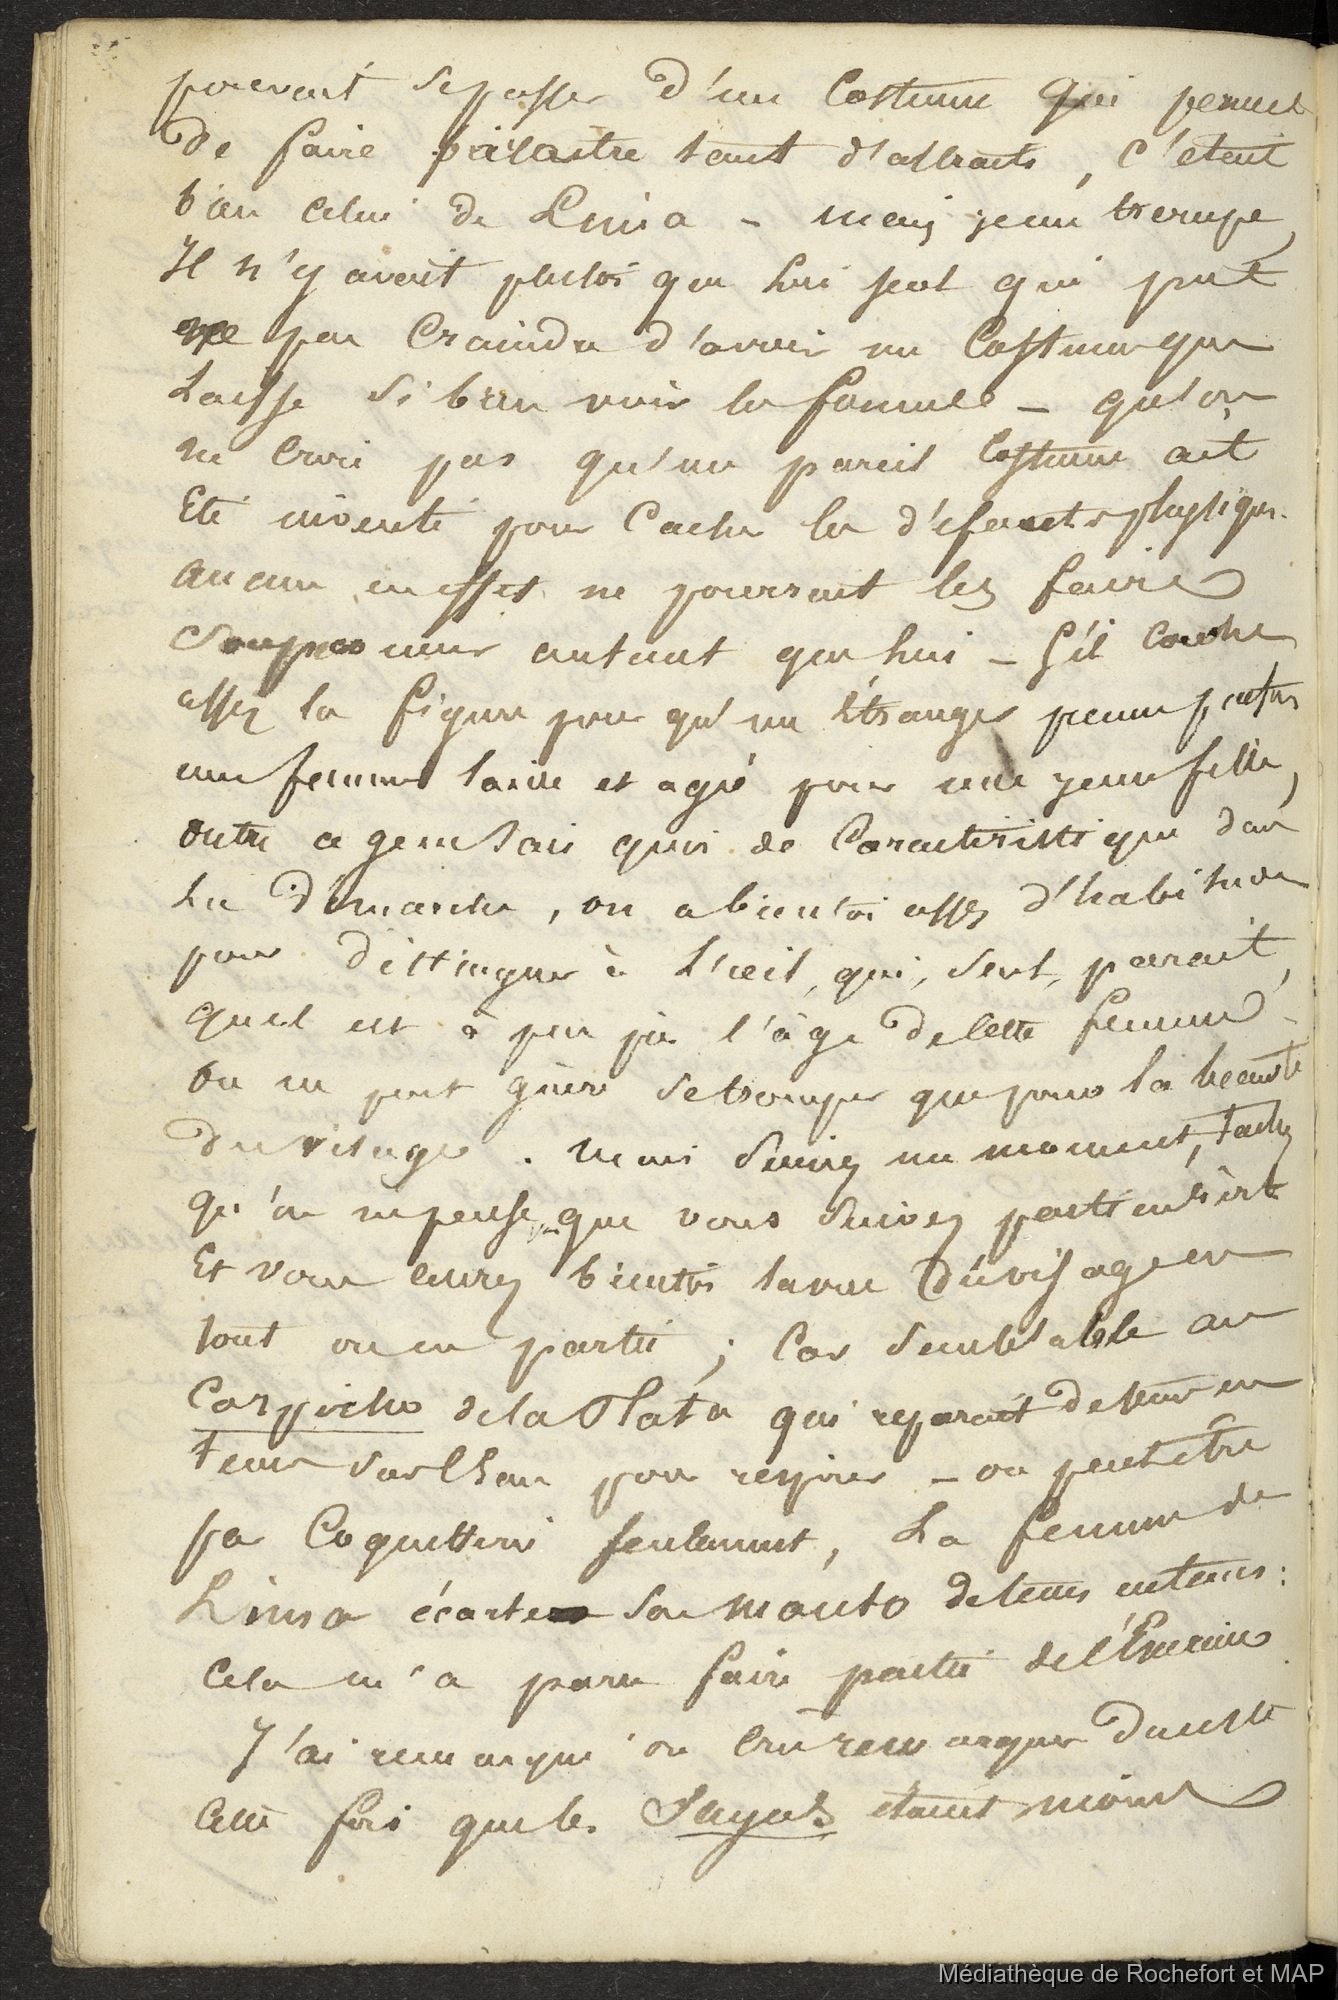 pouvait se passer d'un Costume qui permet
de faire paraitre tant d'attraits, C'etait
bien celui de Lima - mais je me trompe,
Il n'y avait plutot que lui seul qui put
ne pas Craindre d'avoir un Costume que
Laisse si bien voir la femme - qu'on
ne Croie pas qu'un pareil Costume ait
Eté inventé pour Cacher les d'efauts physiques.
aucun en effet ne pourrait les faire
Soupconner autant que lui - S'il Cache
assez la figure pour qu'un Etranger prenne
une femme laide et agée pour une jeune fille,
outre a je ne sais quoi de Caracteristique dans
La D'emarche, on a bientot assez d'habitude
pour distinguer à L'œil, qui, seul, parait,
quel est à peu près l'âge de Cette femme -
On ne peut guère se tromper que pour la beauté
du visage. mais suivez un moment, tachez
qu'on ne pense que vous suivez
Et vous aurez bientôt la vue du visage en
tout ou en partie ; Car semblable au
Carpicho de la Plata qui reparait de tems en
tems sur l'eau pour respirer - ou peut être
par Coquetterie seulement, La femme de
Lima écarte son manto de tems en tems :
Cela m'a paru faire partie de
J'ai remarqué ou Cru remarquer
Cette fois que les Sayas etaient moins
Médiathèque de Rochefort et MAP